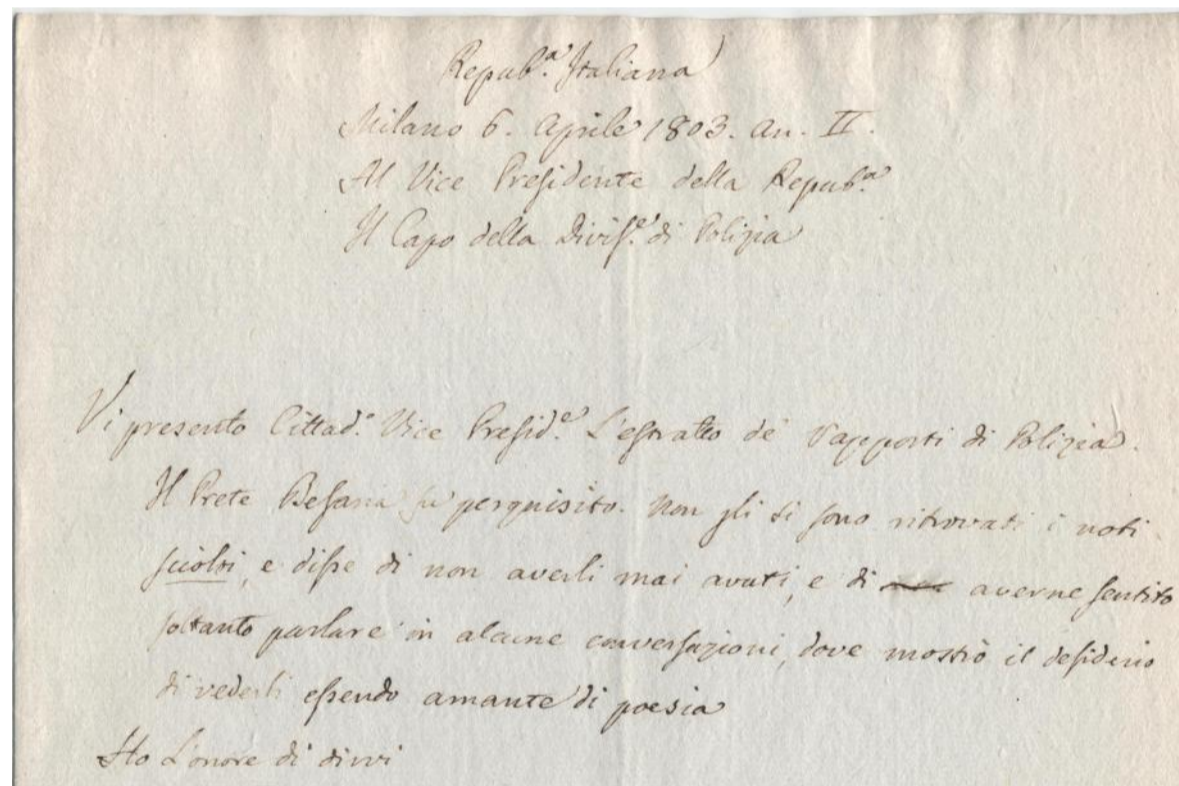 Repub.ª Italiana
Milano 6. Aprile 1803. an. II.
Al Vice Presidente della Repub.ª
Il Capo della Divis.e di Polizia
Vi presento Cittad.º Vice Presid.e L'estratto de' rapporti di Polizia.
Il Prete Besana fu perquisito. Non gli si sono ritrovati i noti
sciolti, e disse di non averli mai avuti, e di averne sentito
soltanto parlare in alcune conversazioni, dove mostrò il desiderio
di vederli essendo amante di poesia
Ho L'onore di dirvi